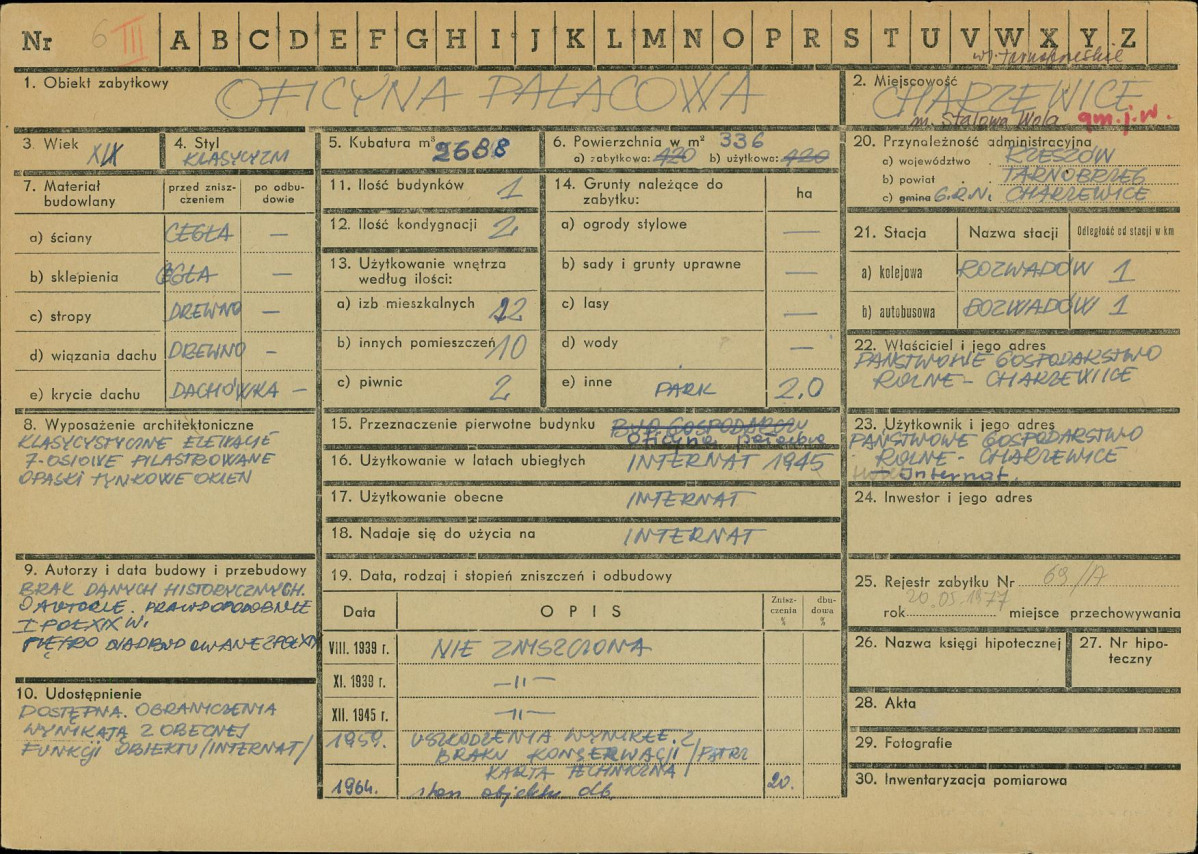 Nr 6 III A B C D E F G H I J K L M N O P R S T U V W X Y Z
1. Obiekt zabytkowy OFICYNA PAŁACOWA
2. Miejscowość
CHARZEWICE
m. Stalowa Wola gm. j. w.
3. Wiek XIX
4. Styl
KLASYCYZM
5. Kubatura m³ 2688
6. Powierzchnia w m² 336
a) zabytkowa: 420 b) użytkowa: 420
7. Materiał budowlany
przed zniszczeniem
po odbudowie
a) ściany CEGŁA —
b) sklepienia CEGŁA —
c) stropy DREWNO —
d) wiązania dachu DREWNO -
e) krycie dachu DACHÓWKA —
8. Wyposażenie architektoniczne
KLASYCYSTYCZNE ELEWACJE
7-OSIOWE PILASTROWANE
OPASKI TYNKOWE OKIEN
9. Autorzy i data budowy i przebudowy
BRAK DANYCH HISTORYCZNYCH.
O AUTORZE. PRAWDOPODOBNIE
I POŁ XIX W.
PIĘTRO NADBUDOWANE 2 POŁ XIX
10. Udostępnienie
DOSTĘPNA. OGRANICZENIA
WYNIKAJĄ Z OBECNEJ
FUNKCJI OBIEKTU /INTERNAT/
11. Ilość budynków 1
12. Ilość kondygnacji 2
13. Użytkowanie wnętrza
według ilości:
a) izb mieszkalnych 22
b) innych pomieszczeń 10
c) piwnic 2
14. Grunty należące do
zabytku:
ha
a) ogrody stylowe —
b) sady i grunty uprawne —
c) lasy —
d) wody —
e) inne PARK 2,0
15. Przeznaczenie pierwotne budynku BUD GOSPODARCZY
Oficyna pałacowa
16. Użytkowanie w latach ubiegłych INTERNAT 1945
17. Użytkowanie obecne INTERNAT
18. Nadaje się do użycia na INTERNAT
19. Data, rodzaj i stopień zniszczeń i odbudowy
Data
OPIS
Zniszczenia %
dbudowa %
VIII. 1939 r. NIE ZNISZCZONA
XI. 1939 r. —"—
XII. 1945 r. —"—
1959. USZKODZENIA WYNIKŁE Z
BRAKU KONSERWACJI /PATRZ
KARTA TECHNICZNA/
1964. stan obiektu db. 20.
20. Przynależność administracyjna
a) województwo RZESZÓW
b) powiat TARNOBRZEG
c) gmina G.R.N. CHARZEWICE
21. Stacja
Nazwa stacji
Odległość od stacji w km
a) kolejowa ROZWADÓW 1
b) autobusowa ROZWADÓW 1
22. Właściciel i jego adres
PAŃSTWOWE GOSPODARSTWO
ROLNE - CHARZEWICE
23. Użytkownik i jego adres
PAŃSTWOWE GOSPODARSTWO
ROLNE - CHARZEWICE
Internat.
24. Inwestor i jego adres
25. Rejestr zabytku Nr 69/A
20.05.1977
rok miejsce przechowywania
26. Nazwa księgi hipotecznej
27. Nr hipoteczny
28. Akta
29. Fotografie
30. Inwentaryzacja pomiarowa